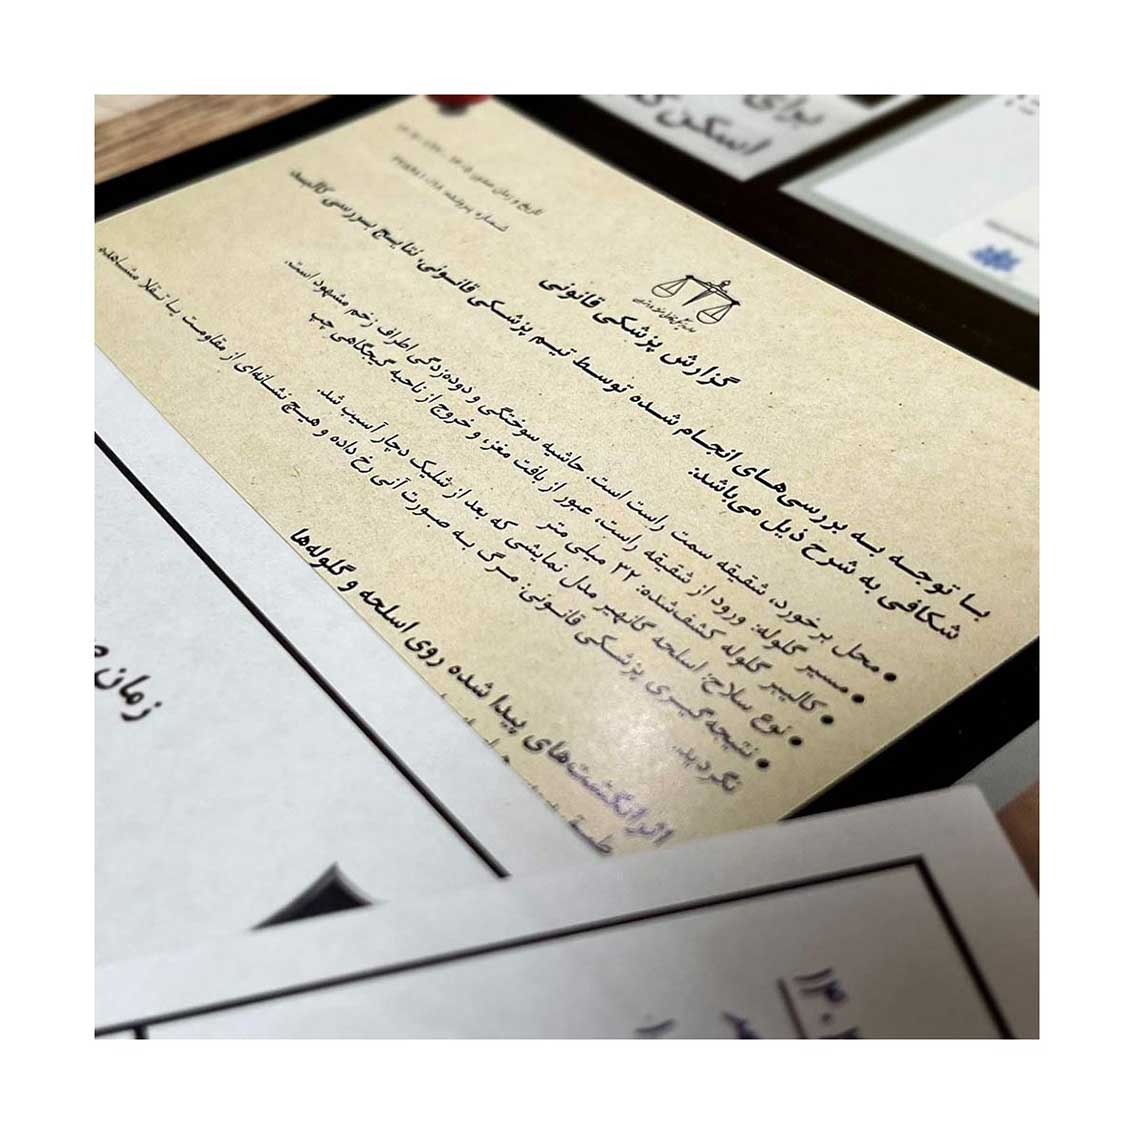 برای
اسکن ک
تاریخ و زمان صدور:
شماره پرونده:
گزارش پزشکی قانونی
با توجه به بررسی‌های انجام شده توسط تیم پزشکی قانونی، نتایج بررسی کالبد
شکافی به شرح ذیل می‌باشد:
• محل برخورد، شقیقه سمت راست است. حاشیه سوختگی و دوده‌زدگی اطراف زخم مشهود است.
• مسیر گلوله: ورود از شقیقه راست، عبور از بافت مغز، و خروج از ناحیه گیجگاهی چپ
• کالیبر گلوله کشف‌شده: ۳۲ میلی متر
• نوع سلاح: اسلحه گانهیر مدل نمایشی که بعد از شلیک دچار آسیب شد.
• نتیجه‌گیری پزشکی قانونی: مرگ به صورت آنی رخ داده و هیچ نشانه‌ای از مقاومت یا تقلا مشاهده
نگردید.
اثر انگشت‌های پیدا شده روی اسلحه و گلوله‌ها
زمان